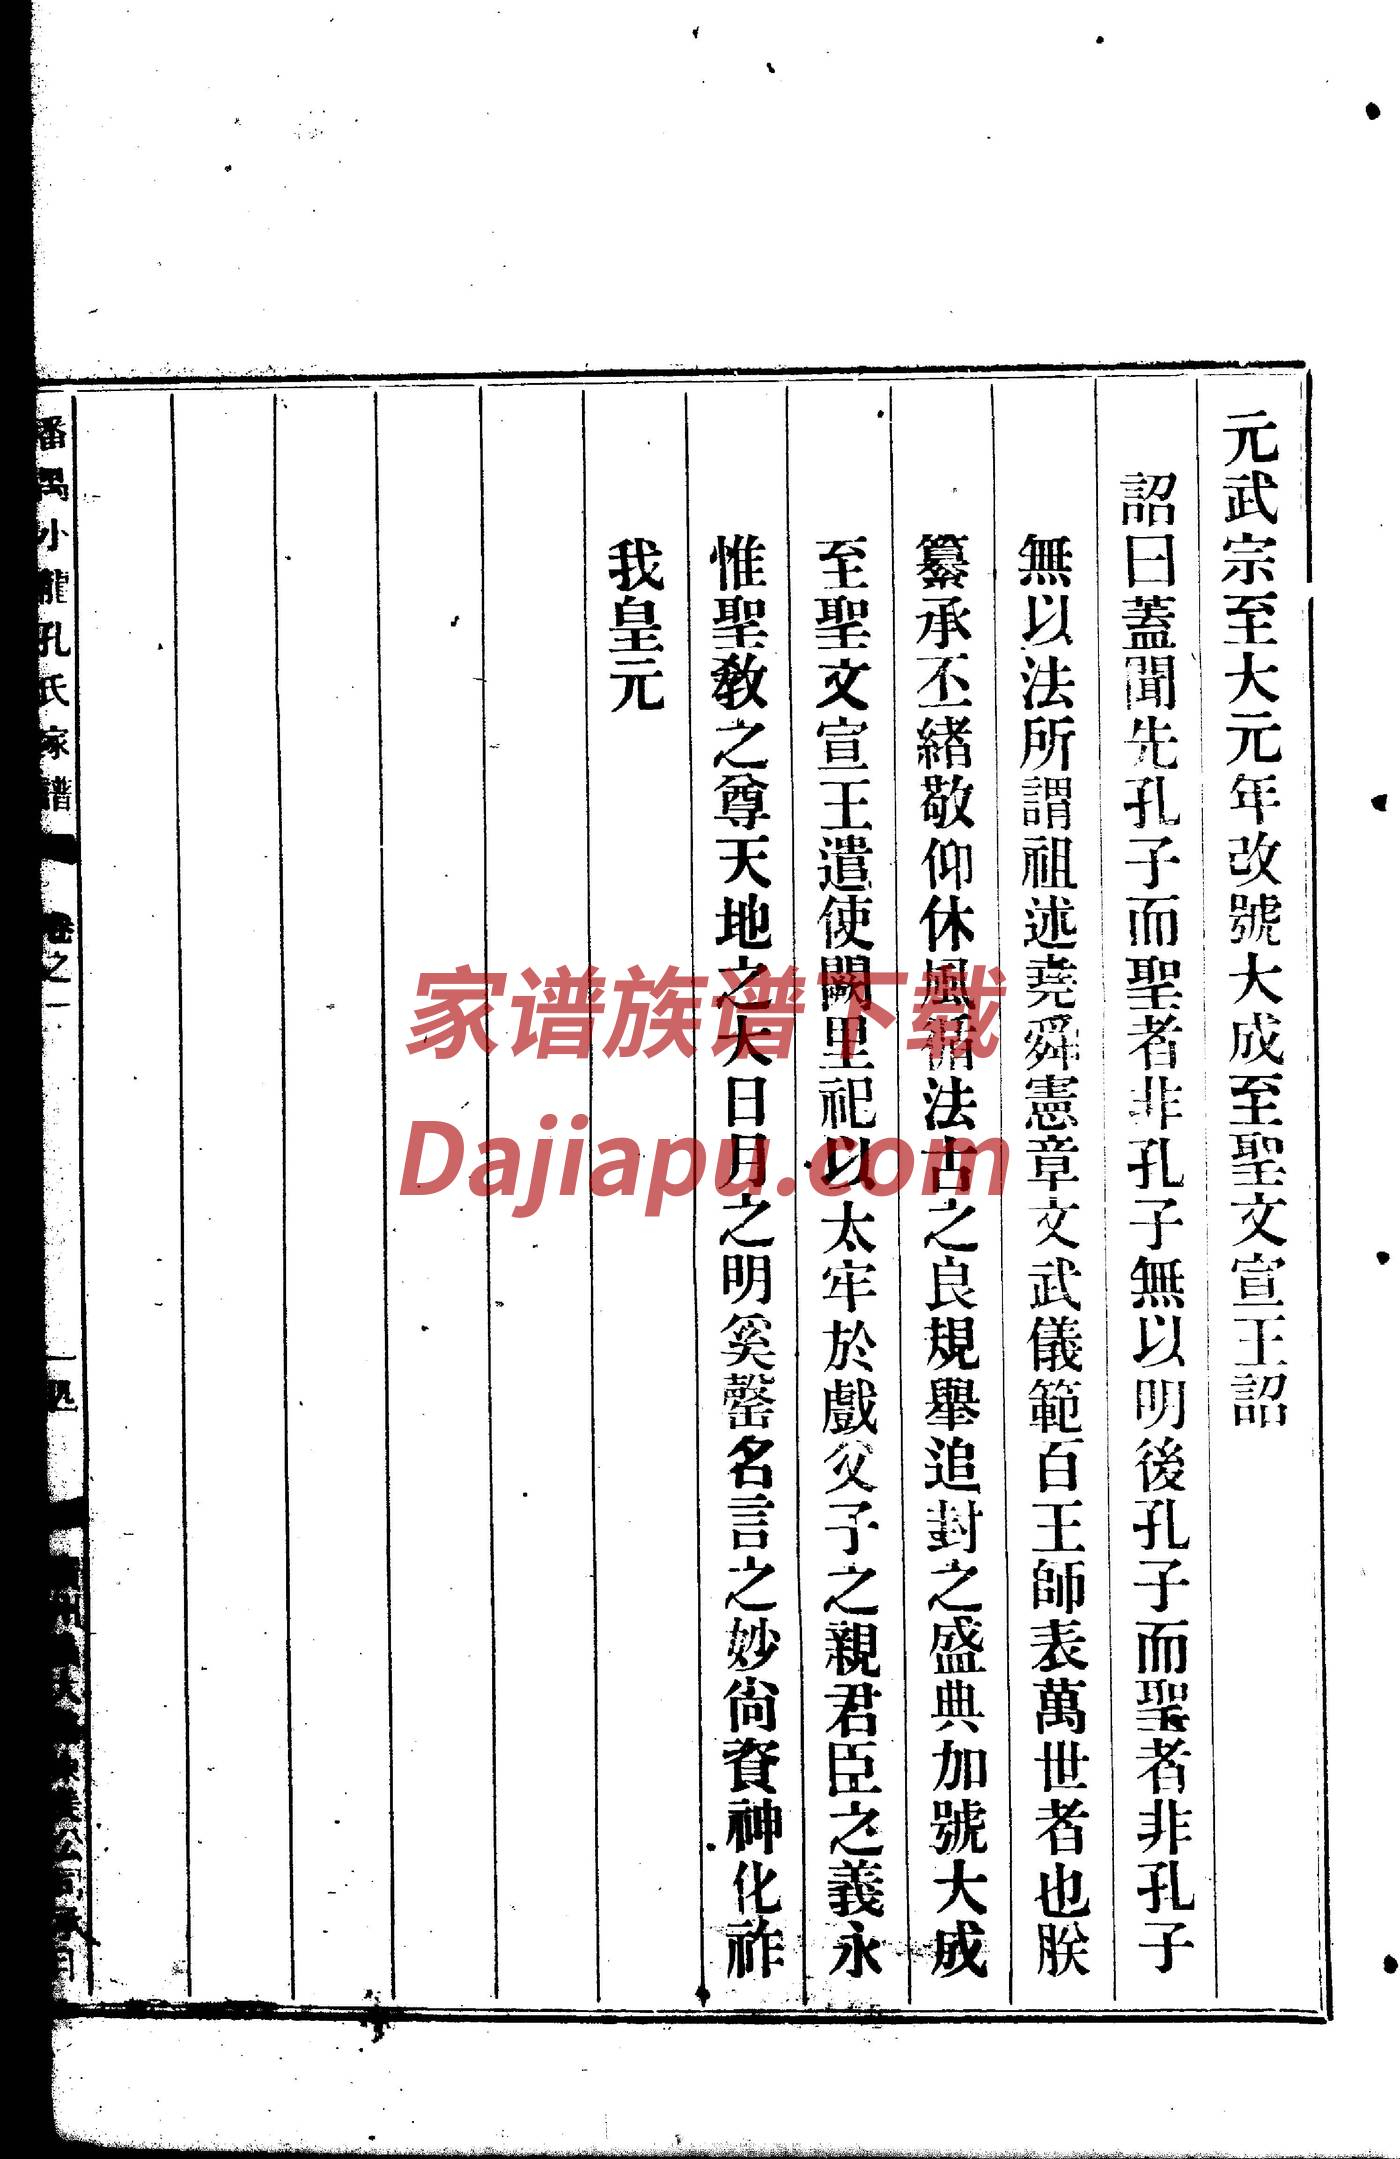 元武宗至大元年改號大成至聖文宣王詔
詔曰蓋聞先孔子而聖者非孔子無以明後孔子而聖者非孔子
無以法所謂祖述堯舜憲章文武儀範百王師表萬世者也朕
纂承丕緒敬仰休風循法古之良規舉追封之盛典加號大成
至聖文宣王遣使闕里祀以太牢於戲父子之親君臣之義永
惟聖教之尊天地之大日月之明奚罄名言之妙尙資神化祚
我皇元
番禺小龍孔氏家譜
卷之一
家谱族谱下载
Dajiapu.com